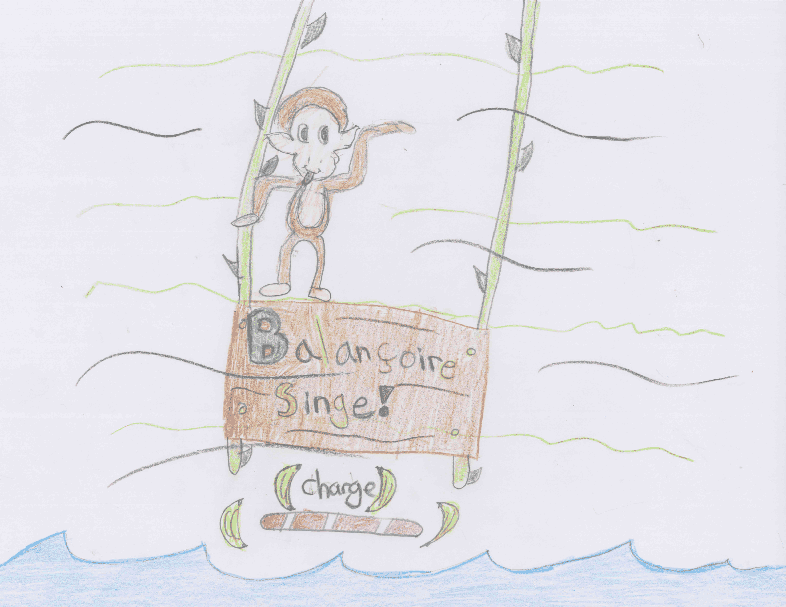 Balançoire
Singe!
Charge